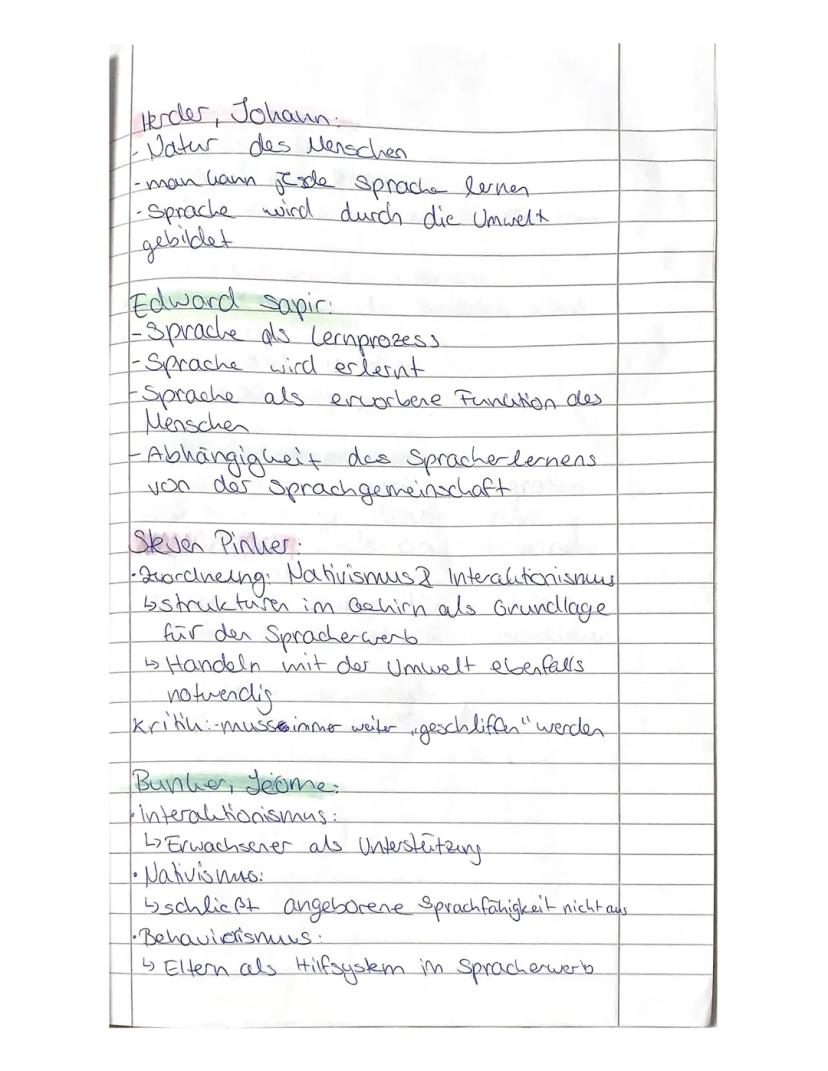 Herder, Johann:
- Natur des Menschen
- man kann jede Sprache lernen
- Sprache wird durch die Umwelt
gebildet
Edward Sapir:
- Sprache als Lernprozess
- Sprache wird erlernt
- Sprache als erworbene Funktion des
Menschen
- Abhängigkeit des Spracherlernens
von der Sprachgemeinschaft
Steven Pinker:
• Zuordneung: Nativismus & Interaktionismus
↳ strukturen im Gehirn als Grundlage
für den Spracherwerb
↳ Handeln mit der Umwelt ebenfalls
notwendig
Kritik: - muss immer weiter „geschliffen" werden
Bunker, Jeome:
• Interaktionismus:
↳ Erwachsener als Unterstützung
• Nativismus:
↳ schließt angeborene Sprachfähigkeit nicht aus
• Behaviorismus:
↳ Eltern als Hilfsystem im Spracherwerb